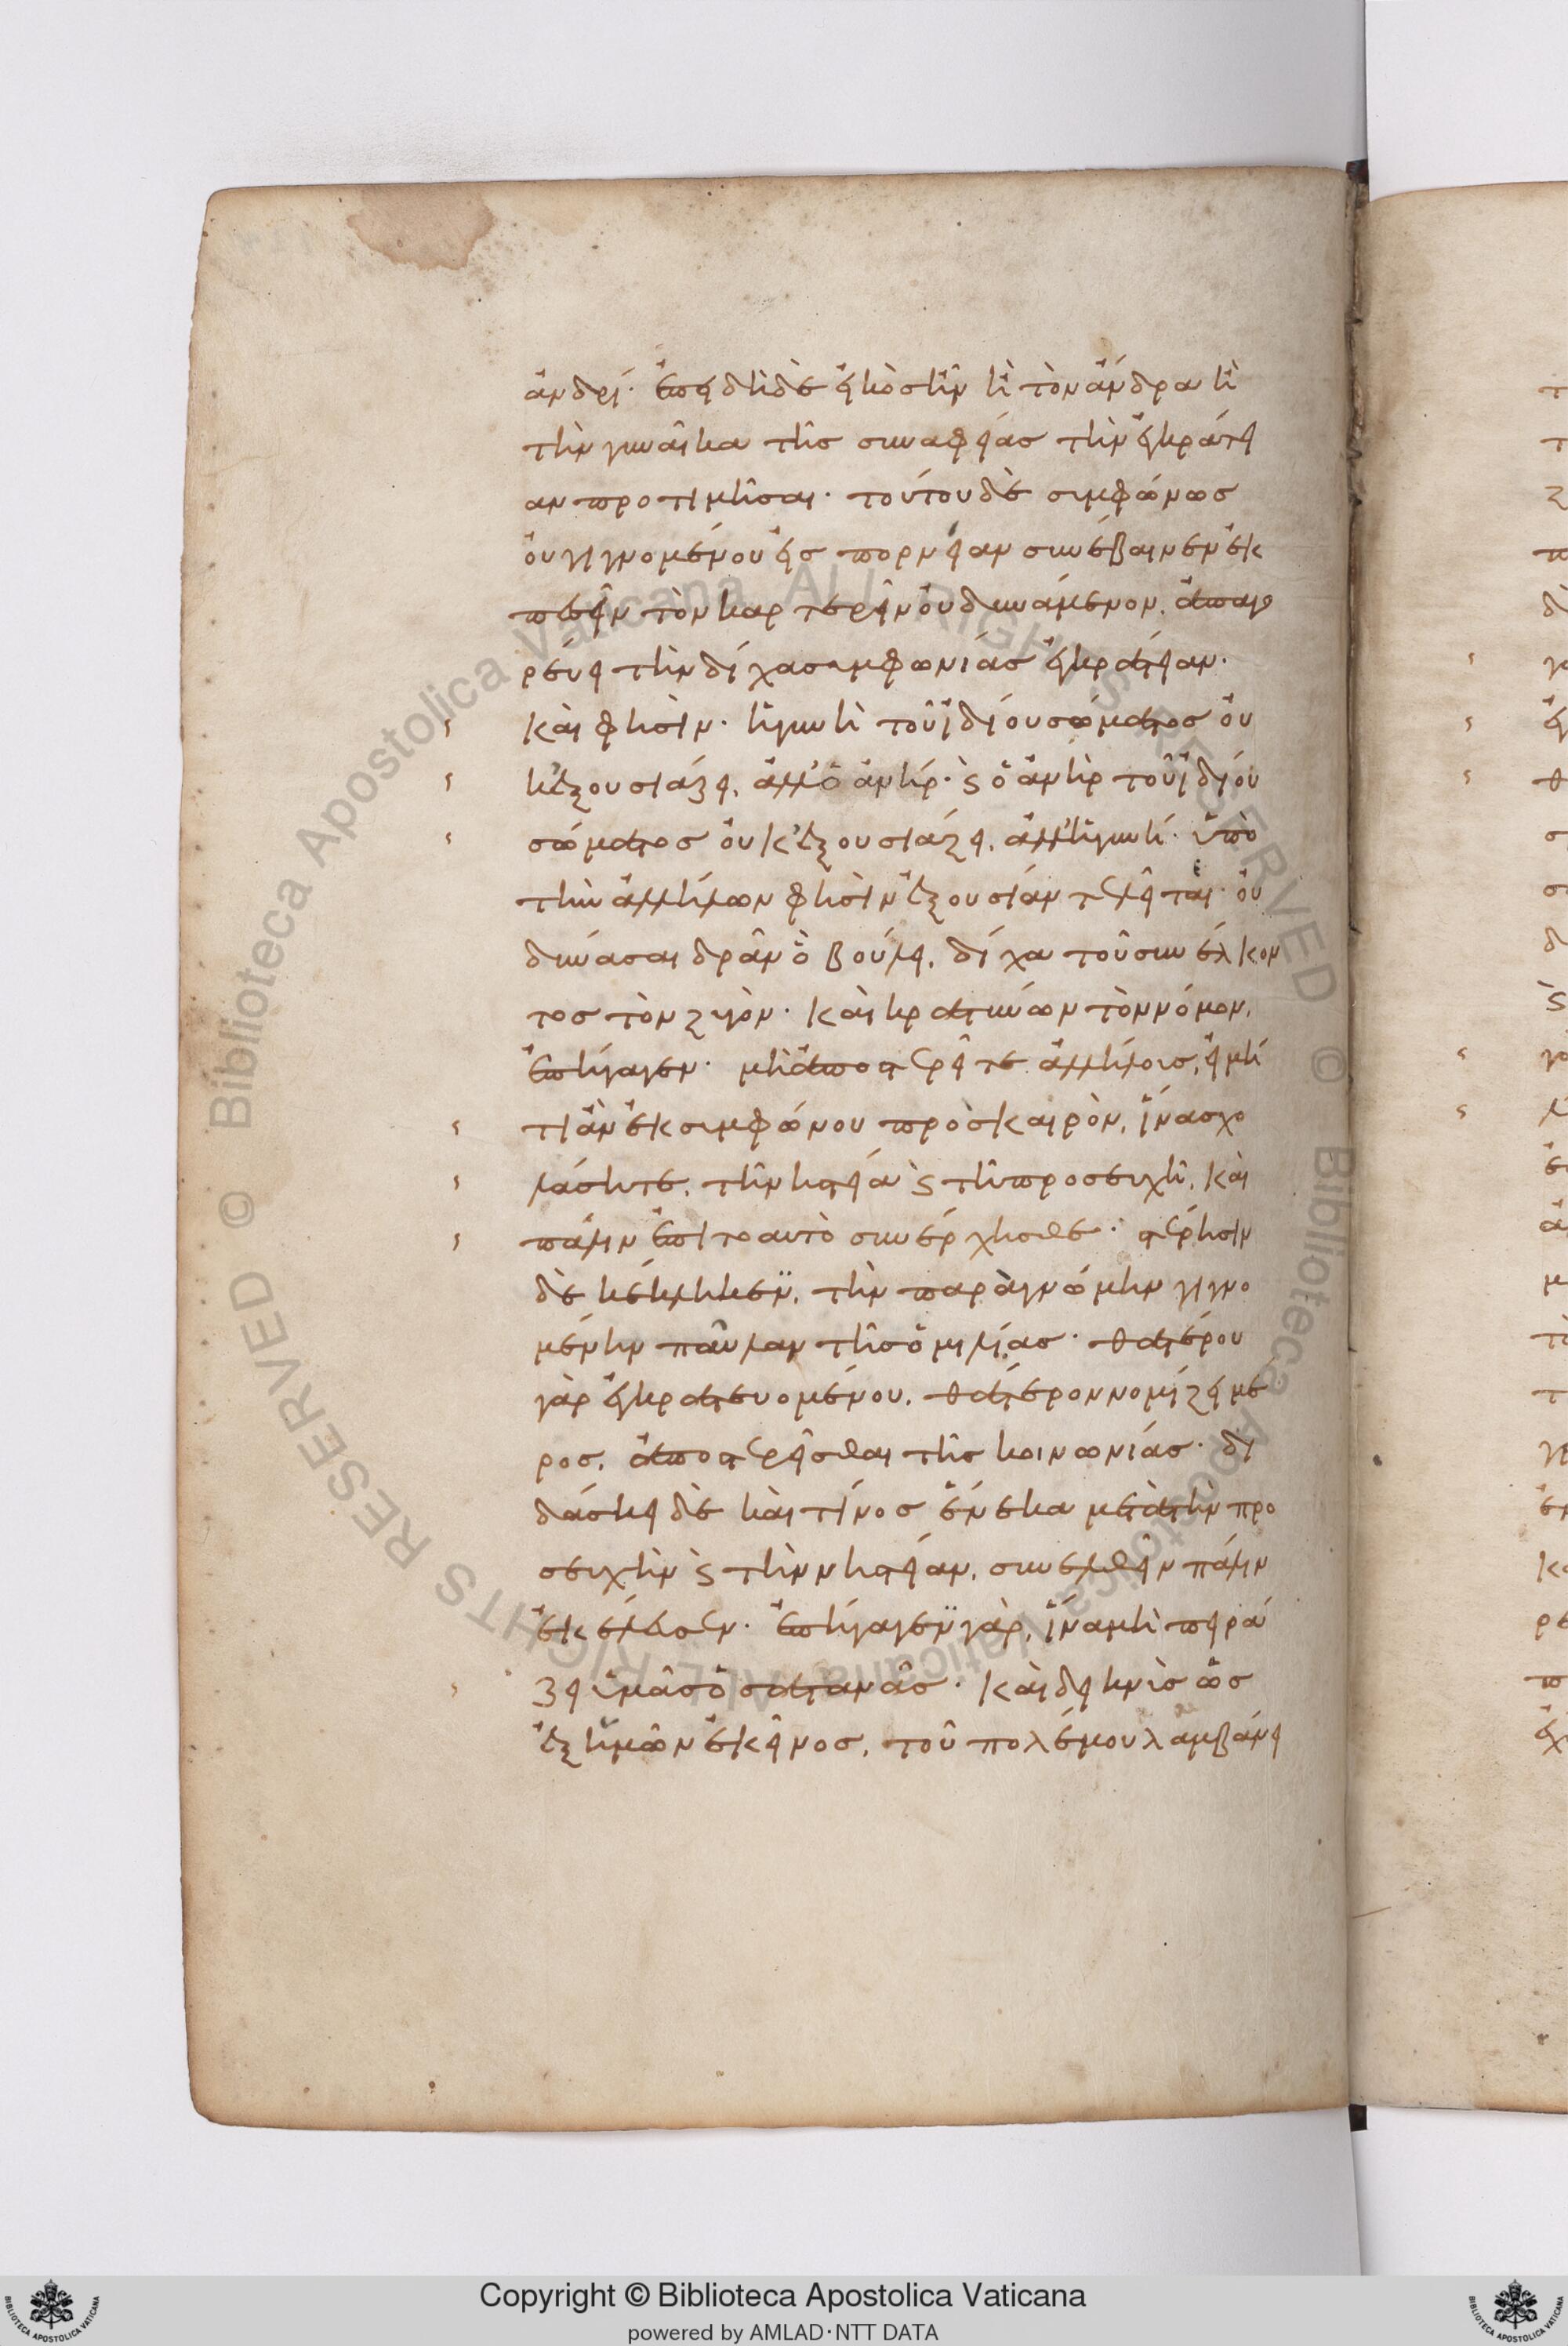 ἀνδρί· ἐπειδὴ δὲ εἰκὸς ἦν ἢ τὸν ἄνδρα ἢ
τὴν γυναῖκα τῆς συναφείας τὴν ἐγκράτει
αν προτιμῆσαι· τούτου δὲ συμφώνως
οὐ γιγνομένου εἰς πορνείαν συνέβαινεν ἐκ
πεσεῖν τὸν καρτερεῖν οὐ δυνάμενον, ἀπαγο
ρεύει τὴν δίχα συμφωνίας ἐγκράτειαν·
καί φησιν· ἡ γυνὴ τοῦ ἰδίου σώματος οὐ
κ' ἐξουσιάζει, ἀλλ' ὁ ἀνήρ· ϗ ὁ ἀνὴρ τοῦ ἰδίου
σώματος οὐκ' ἐξουσιάζει, ἀλλ' ἡ γυνή· ὑπὸ
τὴν ἀλλήλων φησὶν ἐξουσίαν τελεῖται· οὐ
δύνασαι δρᾶν ὃ βούλει, δίχα τοῦ συνέλκον
τος τὸν ζυγόν· καὶ κρατύνων τὸν νόμον,
ἐπήγαγεν· μὴ ἀποστερεῖτε ἀλλήλοις, εἰ μή
τι ἂν ἐκ συμφώνου πρὸς καιρὸν, ἵνα σχο
λάσητε, τῇ νηστείᾳ ϗ τῇ προσευχῇ, καὶ
πάλιν ἐπὶ τὸ αὐτὸ συνέρχησθε· στέρησιν
δὲ κέκληκεν, τὴν παρὰ γνώμην γιγνο
μένην παῦλαν τῆς ὁμιλίας· θατέρου
γὰρ ἐγκρατευομένου, θάτερον νομίζει μέ
ρος, ἀποστερεῖσθαι τῆς κοινωνίας· δι
δάσκει δὲ καὶ τίνος ἕνεκα μετὰ τὴν προ
σευχὴν ϗ τὴν νηστείαν, συνελθεῖν πάλιν
ἐκέλευσεν· ἐπήγαγεν γὰρ, ἵνα μὴ πειρά
ζῃ ὑμᾶς ὁ σατανᾶς· καὶ δεικνὺς ὡς
ἐξ ἡμῶν ἐκεῖνος, τοῦ πολέμου λαμβάνει
Copyright © Biblioteca Apostolica Vaticana
powered by AMLAD·NTT DATA